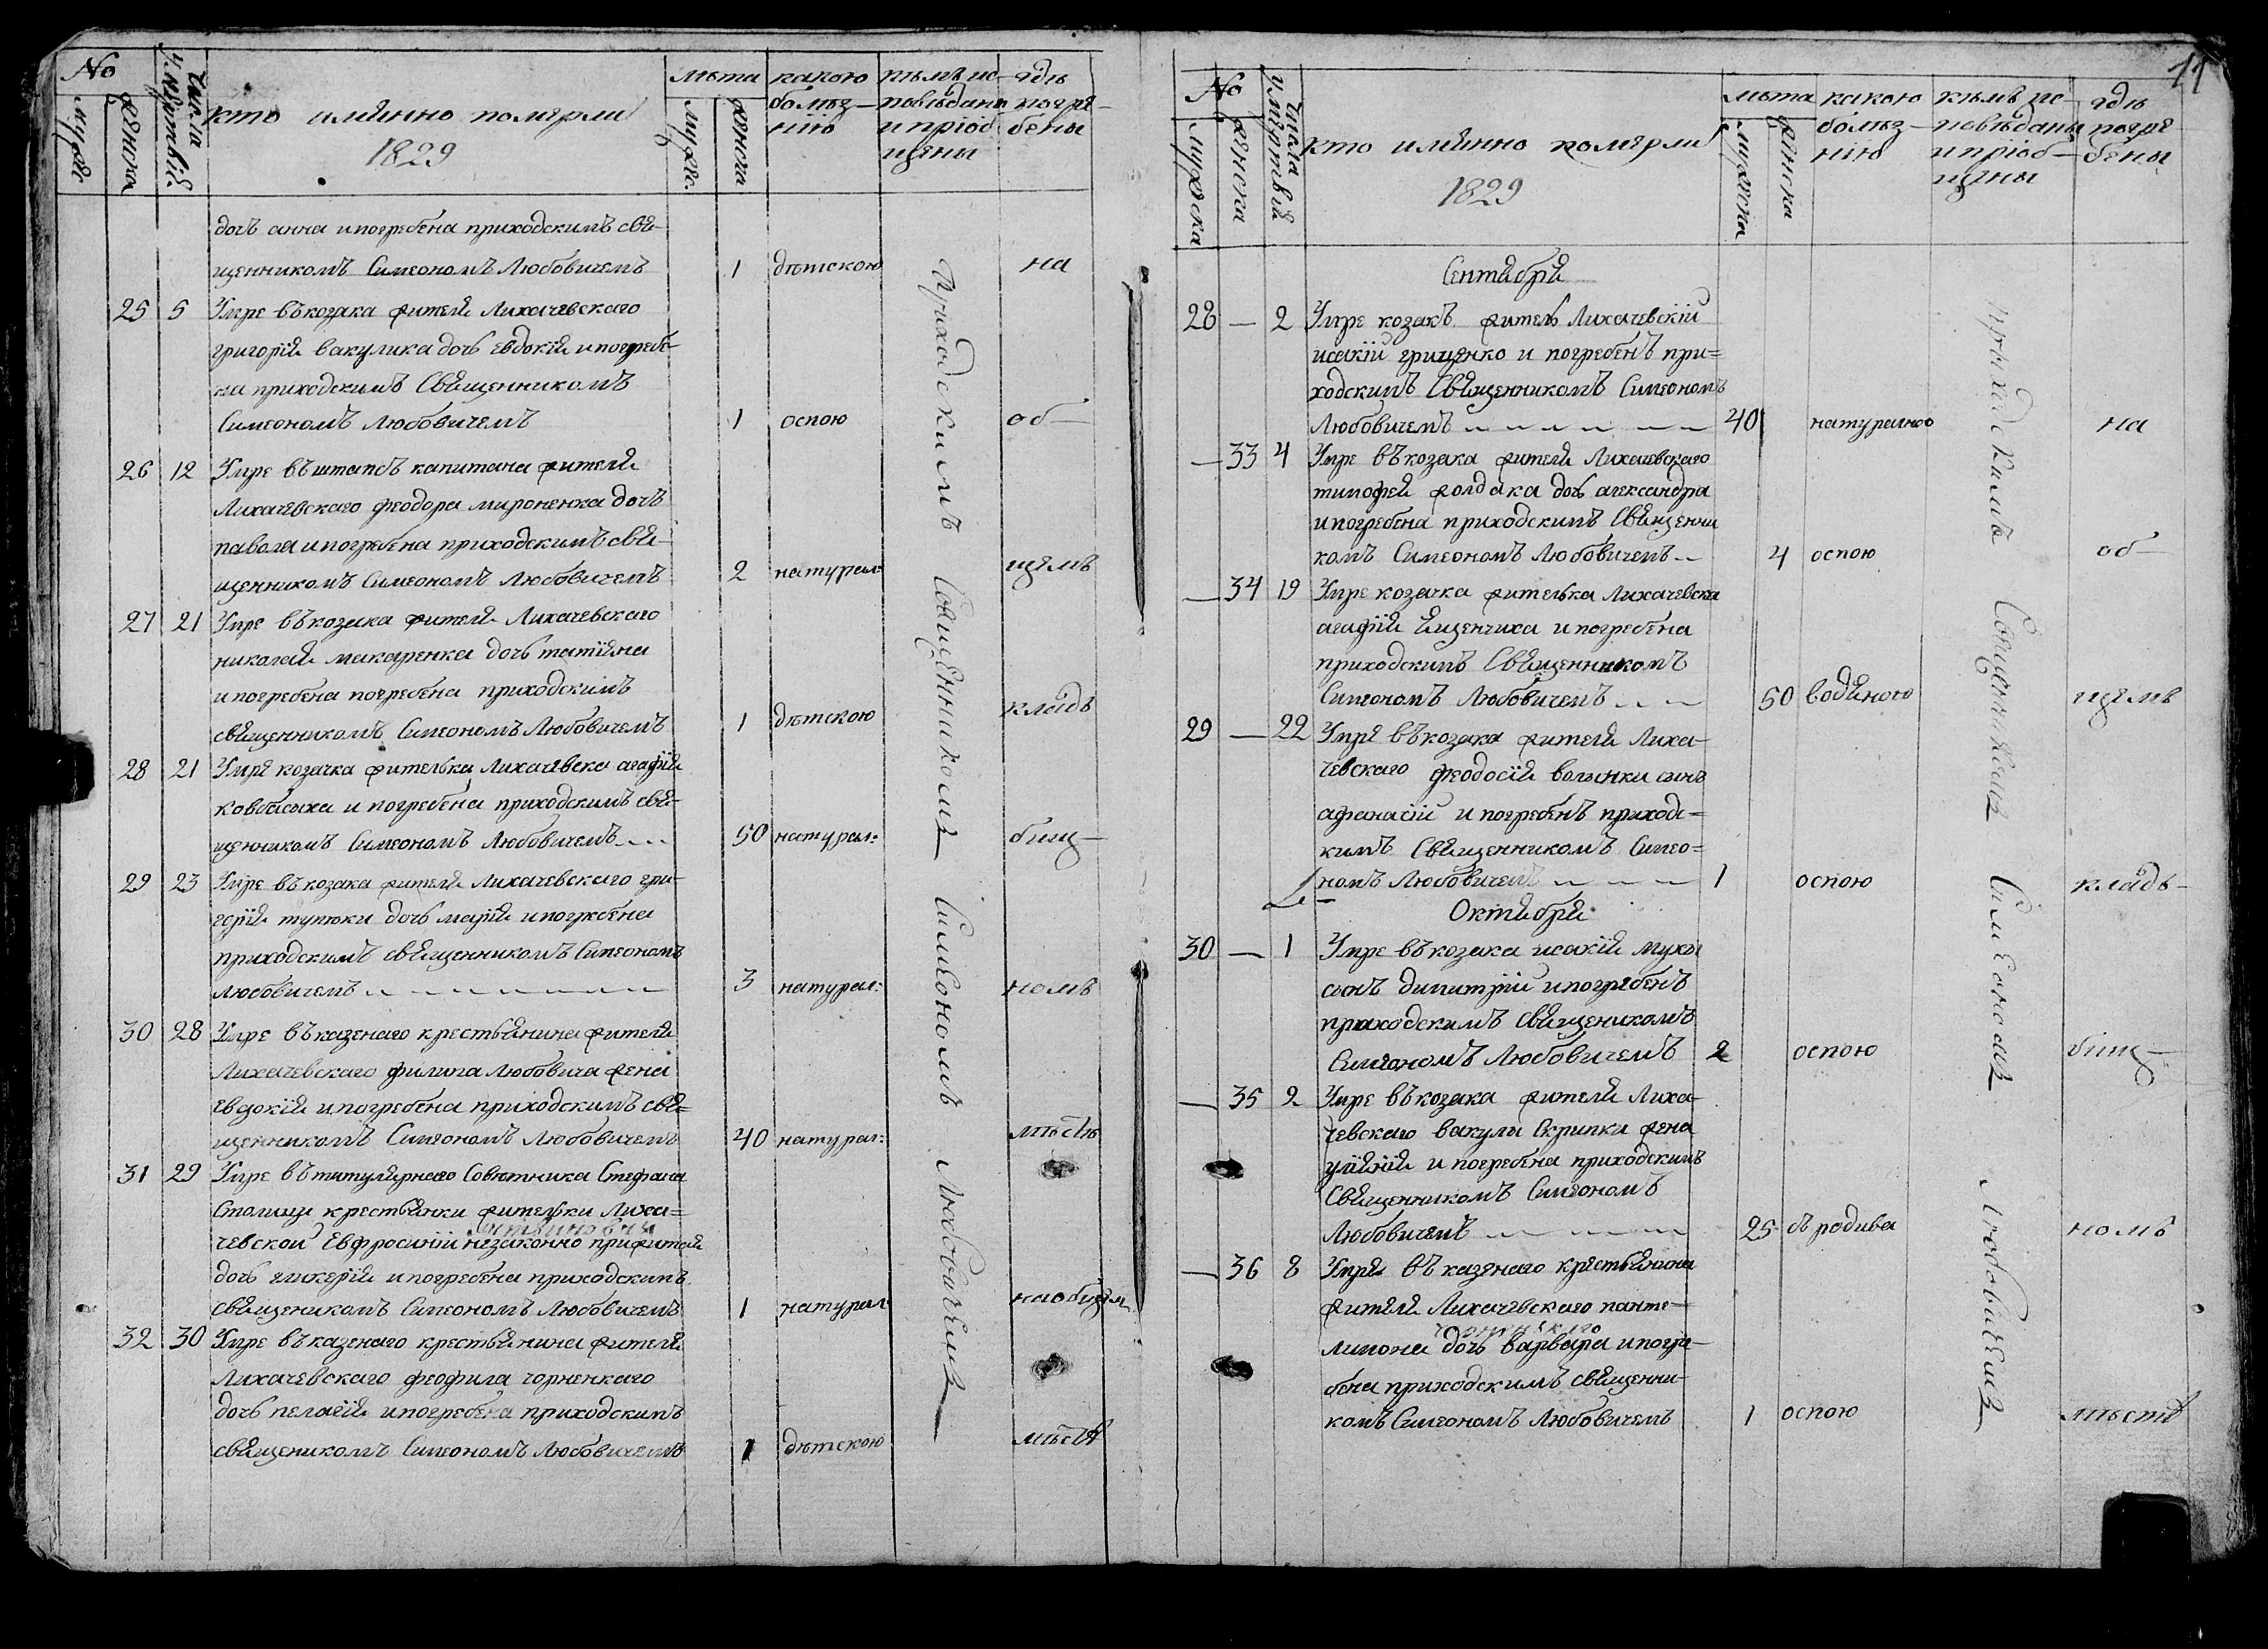 No
Числа умертвій.
мужес
женска
кто именно померли
1829
лѣта
мужес.
женска
какою болѣз-
нію
кѣмъ ис-
повѣданы
и пріоб
щены
гдѣ
погре-
бены
дочь анна и погребена приходскимъ свя-
щенникомъ Симеономъ Любовичемъ 1 дѣтскою на
25 5 Умре въ козака жителя Лихачевскаго
григорія вакулика дочь евдокія и погребе-
на приходскимъ Священникомъ
Симеономъ Любовичемъ 1 оспою об-
26 12 Умре въ штапсъ капитана жителя
Лихачевскаго феодора мироненка дочь
павола и погребена приходскимъ свя-
щенникомъ Симеономъ Любовичемъ 2 натурал: щемъ
27 21 Умре въ козака жителя Лихачевскаго
николая макаренка дочь татіяна
и погребена погребена приходскимъ
священникомъ Симеономъ Любовичемъ 1 дѣтскою кладъ
28 21 Умре козачка жителька Лихачевска агафія
ковбасиха и погребена приходскимъ свя-
щенникомъ Симеономъ Любовичемъ 50 натурал: бищ-
29 23 Умре въ козака жителя Лихачевскаго гри-
горія тупюки дочь марія и погребена
приходскимъ священникомъ Симеономъ
Любовичемъ 3 натурал: номъ
30 28 Умре въ казенаго крестьянина жителя
Лихачевскаго филипа Любовича жена
Евдокія и погребена приходскимъ свя=
щенникомъ Симеономъ Любовичемъ 40 натурал: мѣстѣ
31 29 Умре въ титулярнаго Совѣтника Стефана
Столици крестьянки жительки Лиха=
чевской Евфросиніи незаконно прижитая
дочь гликерія и погребена приходскимъ
священикомъ Симеономъ Любовичемъ 1 натурал наобщем
32 30 Умре въ казенаго крестьянина жителя
Лихачевскаго феофила чорненкаго
дочь пелагія и погребена приходскимъ
священикомъ Симеономъ Любовичемъ 1 дѣтскою мѣстѣ
Приходскимъ Священникомъ Симеономъ Любовичемъ
11
No
Числа умертвій
мужеска
женска
кто именно померли
1829
лѣта
мужеска
женска
какою
болѣз-
нію
кѣмъ ис-
повѣданы
и пріоб-
щены
гдѣ
погре
бены
Сентября
28 — 2 Умре козакъ житель Лихачевскій
исакій гриценко и погребенъ при=
ходскимъ Священникомъ Симеономъ
Любовичемъ 40 натуралною на
— 33 4 Умре въ козака жителя Лихачевскаго
тимофея жолдака дочь александра
и погребена приходскимъ Священни
комъ Симеономъ Любовичемъ 4 оспою об-
— 34 19 Умре козачка жителька Лихачевска
агафія Ященчиха и погребена
приходскимъ Священникомъ
Симеономъ Любовичемъ 50 водяною щемъ
29 — 22 Умре въ козака жителя Лиха-
чевскаго феодосія волынки сынъ
афанасій и погребенъ приходс=
кимъ Священникомъ Симео=
номъ Любовичемъ 1 оспою кладъ-
Октября
30 — 1 Умре въ козака исакія мухи
сынъ димитрій и погребенъ
приходскимъ священикомъ
Симеономъ Любовичемъ 2 оспою бищ-
— 35 2 Умре въ козака жителя Лиха-
чевскаго вакулы Скрипки жена
уліянія и погребена приходскимъ
Священникомъ Симеономъ
Любовичемъ 25 съ родива номъ
— 36 8 Умре въ казенаго крестьянина
жителя Лихачевскаго панте-
чорненкаго
лимона дочь варвара и погре-
бена приходскимъ священни-
комъ Симеономъ Любовичемъ 1 оспою мѣстѣ
приходскимъ Священникомъ Симеономъ Любовичемъ